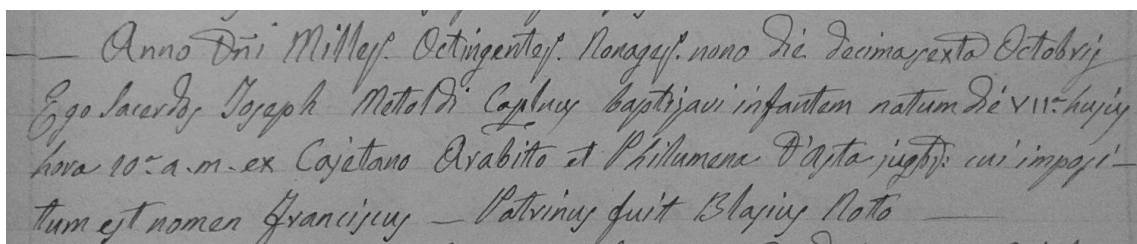 — Anno Dñi Milles. Octingentes. Nonages. nono die decimasexta Octobris
Ego Sacerdos Joseph Mettoldi Caplnus baptisavi infantem natum die VIIa hujus
hora 10a a.m. ex Cajetano Arabitto et Philumena D'Asta jugbs: cui imposi-
tum est nomen Franciscus — Patrinus fuit Blasius Notto —